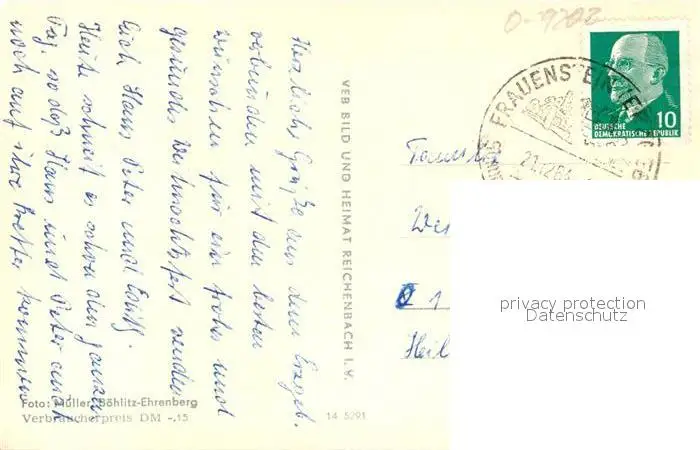 D-9203
FRAUENSTEIN
21.12.64
DEUTSCHE
DEMOKRATISCHE REPUBLIK
10
Herzliche Grüße aus dem Erzgeb.
verbunden mit den besten
Wünschen für ein frohes und
gesundes Weihnachtsfest senden
Euch Hans Peter und
Heute schneit es schon den ganzen
Tag, so daß Hans und Peter auch
noch auf ihre Bretter kommen
VEB BILD UND HEIMAT REICHENBACH I. V.
We
1
Heil
privacy protection
Datenschutz
Foto: Müller, Böhlitz-Ehrenberg
Verbraucherpreis DM -,15
14 5291